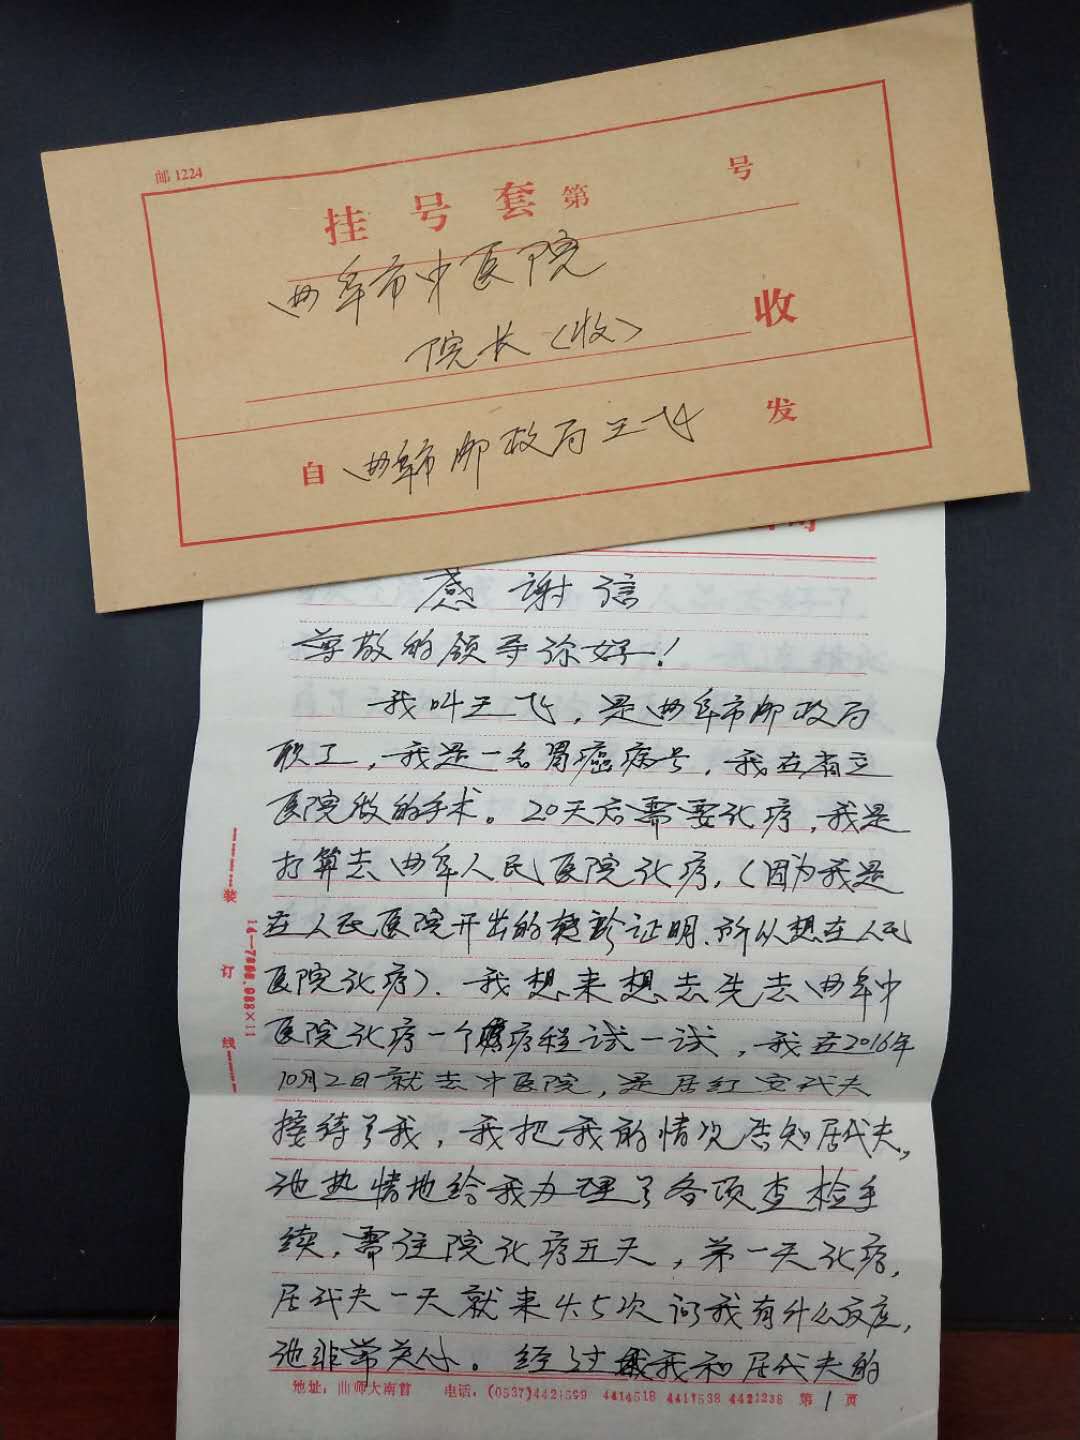 邮 1224
挂号套第 号
曲阜市中医院
院长（收）
收
自 曲阜市邮政局王飞 发
感谢信
尊敬的领导你好！
我叫王飞，是曲阜市邮政局
职工，我是一名胃癌病号，我在省立
医院做的手术。20天后需要化疗，我是
打算去曲阜人民医院化疗，（因为我是
在人民医院开出的转诊证明、所以想在人民
医院化疗）．我想来想去先去曲阜中
医院化疗一个疗程试一试，我在2016年
10月2日就去中医院，是居红安代夫
接待了我，我把我的情况告知居代夫，
他热情地给我办理了各项查检手
续，需住院化疗五天，第一天化疗，
居代夫一天就来4.5次问我有什么反应，
他非常关心。经过我和居代夫的
装
订
线
地址：曲师大南首 电话：(0537)4421599 4414518 4417538 4421238 第1页